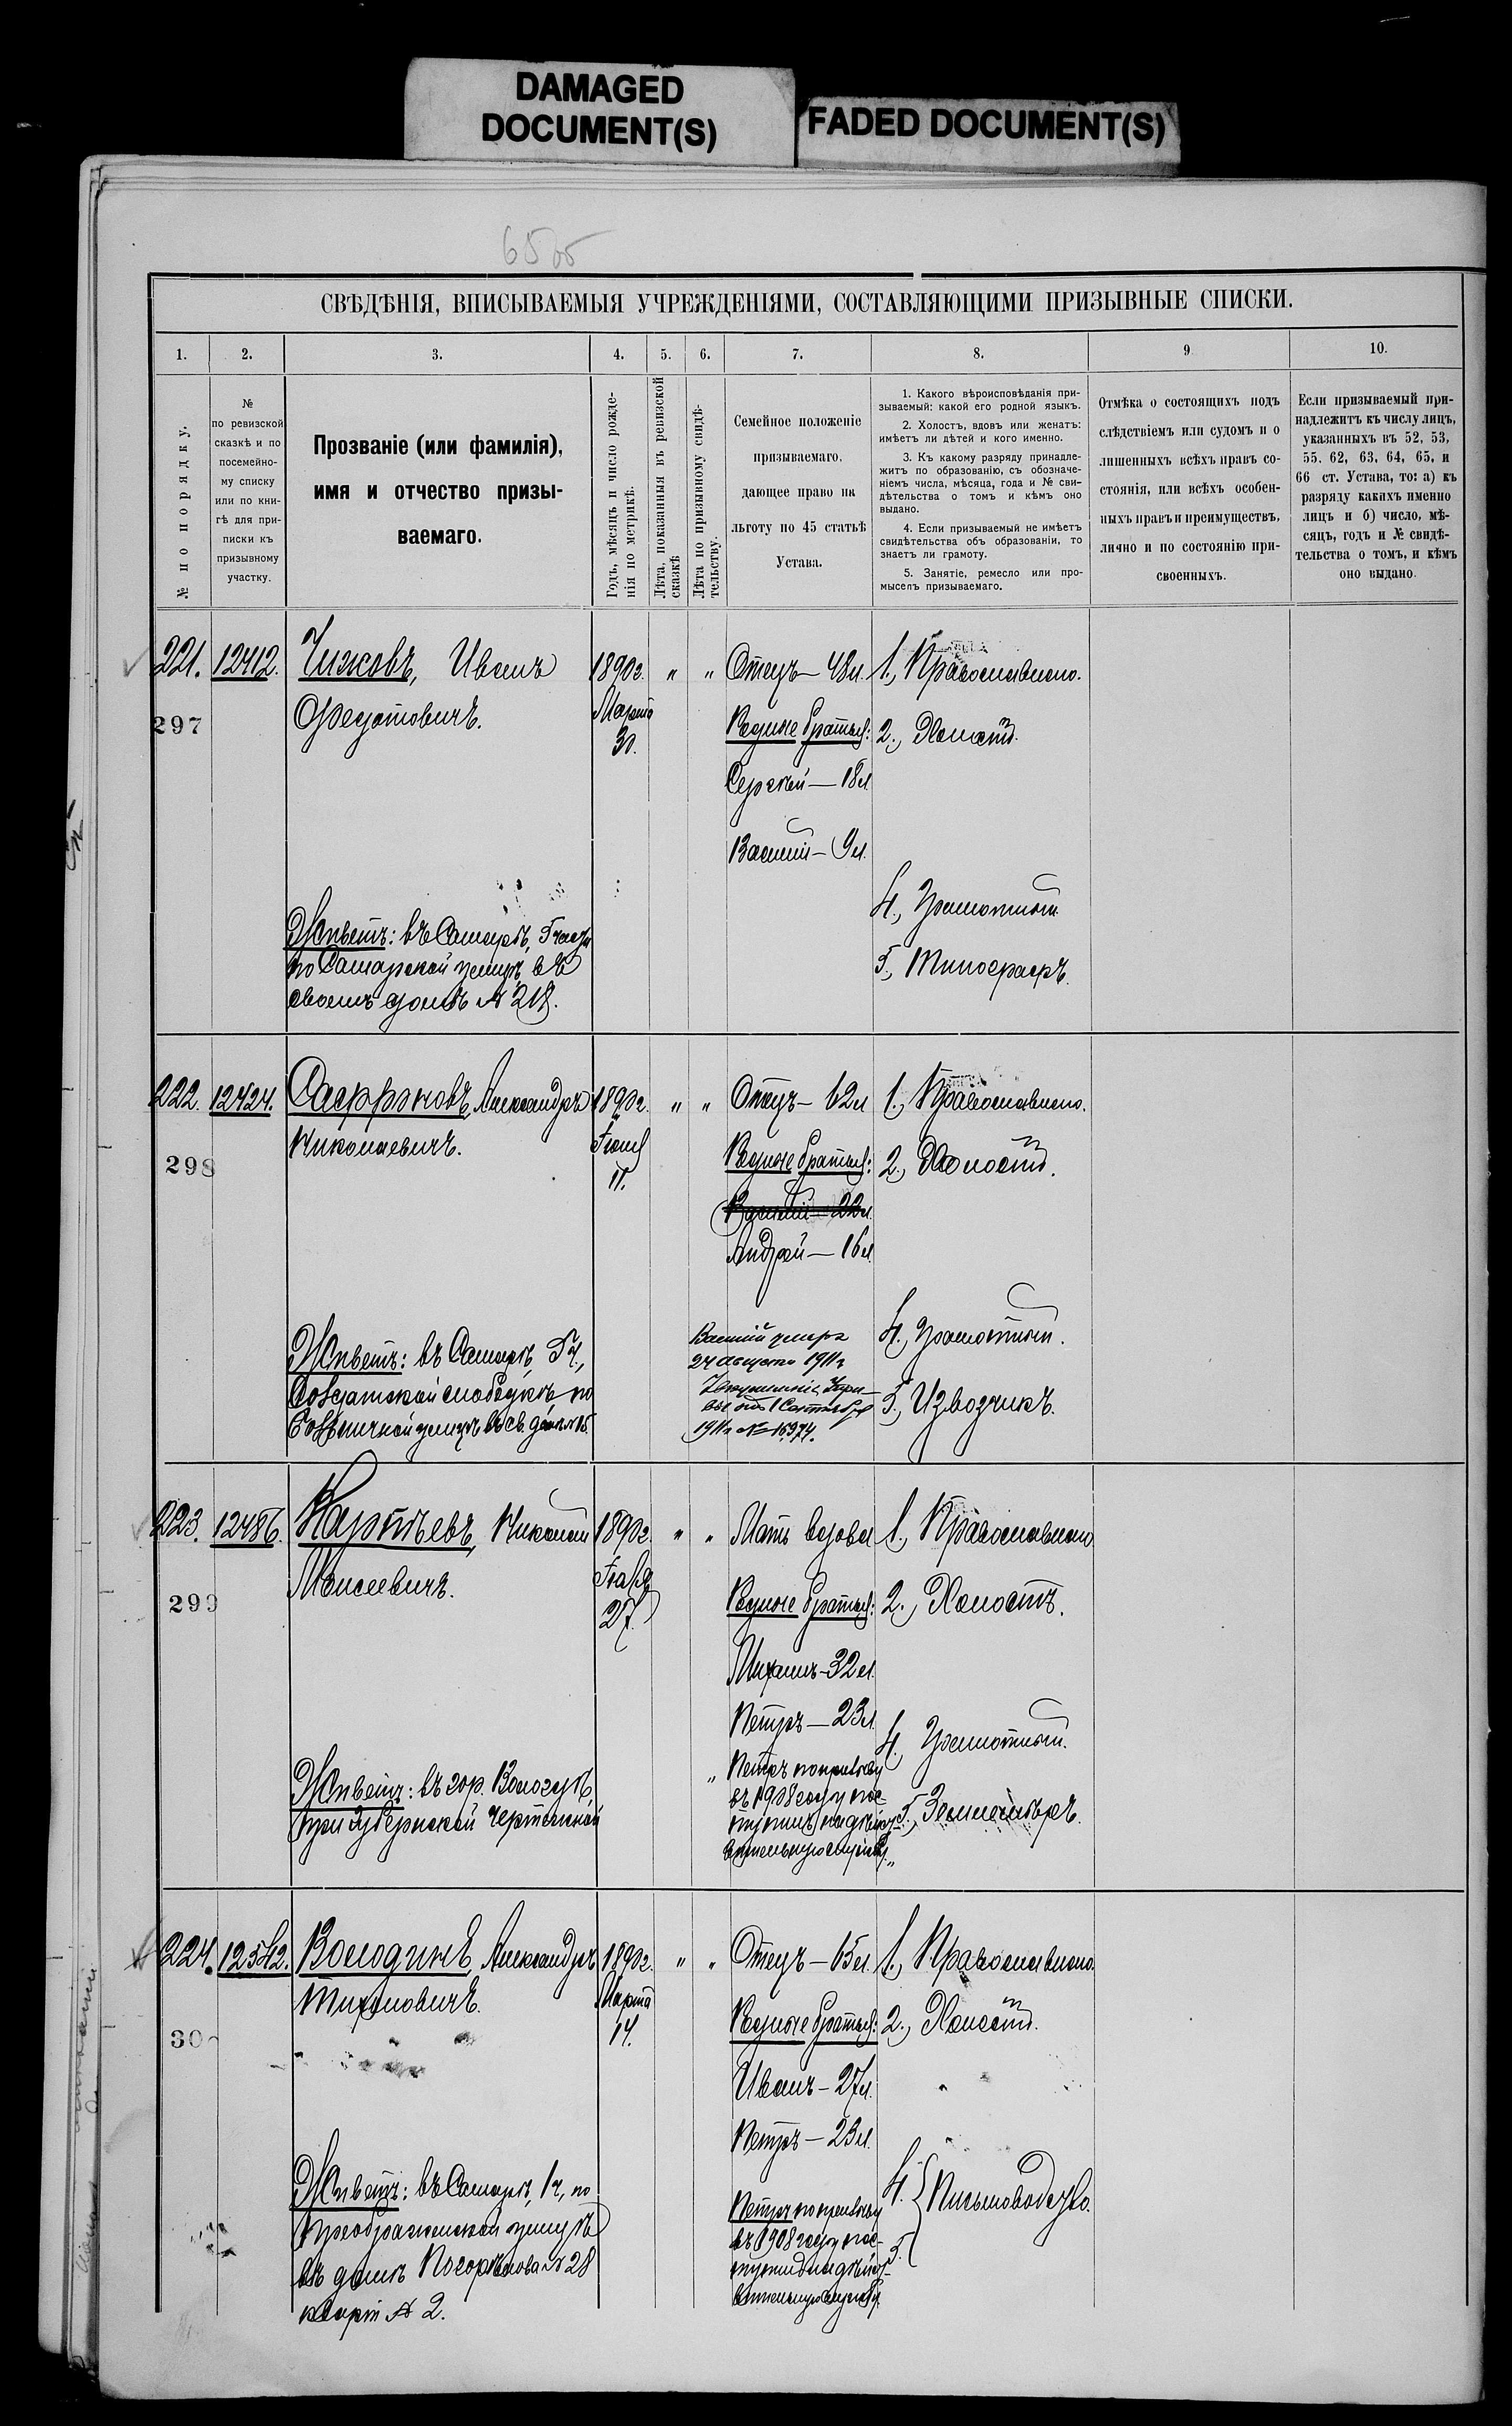 DAMAGED
DOCUMENT(S)
FADED DOCUMENT(S)
65об
СВѢДѢНІЯ, ВПИСЫВАЕМЫЯ УЧРЕЖДЕНІЯМИ, СОСТАВЛЯЮЩИМИ ПРИЗЫВНЫЕ СПИСКИ.
1. 2. 3. 4. 5. 6. 7. 8. 9 10.
№ по порядку.
№
по ревизской
сказкѣ и по
посемейно-
му списку
или по кни-
гѣ для при-
писки къ
призывному
участку.
Прозваніе (или фамилія),
имя и отчество призы-
ваемаго.
Годъ, мѣсяцъ и число рожде-
нія по метрикѣ.
Лѣта, показанныя въ ревизской
сказкѣ
Лѣта по призывному свидѣ-
тельству.
Семейное положеніе
призываемаго,
дающее право на
льготу по 45 статьѣ
Устава.
1. Какого вѣроисповѣданія при-
зываемый: какой его родной языкъ.
2. Холостъ, вдовъ или женатъ:
имѣетъ ли дѣтей и кого именно.
3. Къ какому разряду принадле-
житъ по образованію, съ обозначе-
ніемъ числа, мѣсяца, года и № сви-
дѣтельства о томъ и кѣмъ оно
выдано.
4. Если призываемый не имѣетъ
свидѣтельства объ образованіи, то
знаетъ ли грамоту.
5. Занятіе, ремесло или про-
мыселъ призываемаго.
Отмѣка о состоящихъ подъ
слѣдствіемъ или судомъ и о
лишенныхъ всѣхъ правъ со-
стоянія, или всѣхъ особен-
ныхъ правъ и преимуществъ,
лично и по состоянію при-
своенныхъ.
Если призываемый при-
надлежитъ къ числу лицъ,
указанныхъ въ 52, 53,
55, 62, 63, 64, 65, и
66 ст. Устава, то: а) къ
разряду какихъ именно
лицъ и б) число, мѣ-
сяцъ, годъ и № свидѣ-
тельства о томъ, и кѣмъ
оно выдано.
221. 12412. Чижовъ, Иванъ
Федотовичъ.
297
1890г.
Марта
30.
" "
Отецъ — 48л.
Родные братья:
Сергѣй — 18л
Василій — 9л.
1., Православнаго.
2., Холостъ.
4., Грамотный.
5., Типографъ.
Живетъ: въ Самарѣ, 5 части
по Самарской улицѣ, въ
своемъ домѣ № 218.
222. 12424. Сафроновъ, Александръ
Николаевичъ.
298
1890г.
Іюля
11.
" "
Отецъ — 62л
Родные братья:
Василій — 22л.
Андрей — 16л
Василій умеръ
24 Августа 1911г
1911г № 16974.
1., Православнаго.
2., Холостъ.
4., Грамотный.
5., Извозчикъ.
Живетъ: въ Самарѣ, 5ч.,
Солдатской слободкѣ по
улицѣ въ св. домѣ
223. 12486. Карпѣевъ, Николай
Моисеевичъ.
299
1890г.
27.
" "
Мать вдова
Родные братья:
Михаилъ — 32л.
Петръ — 23л.
"Петръ по призыву
въ 1908 году пос-
тупилъ на дѣйст-
вительную службу."
1., Православнаго
2., Холостъ.
4. Грамотный.
5., Землемѣръ.
Живетъ: въ гор. Вологдѣ,
при Губернской Чертежной
224. 12542. Володинъ, Александръ
Тихоновичъ.
30
1890г.
Марта
14.
" "
Отецъ — 65л.
Родные братья:
Иванъ — 27л.
Петръ — 23л.
Петръ по призыву
въ 1908 году пос-
тупилъ на дѣйст-
вительную службу.
1., Православнаго.
2., Холостъ.
4. Письмоводство.
5.
Живетъ: въ Самарѣ, 1ч, по
Преображенской улицѣ
въ домѣ Погорѣлова № 28
кварт № 2.